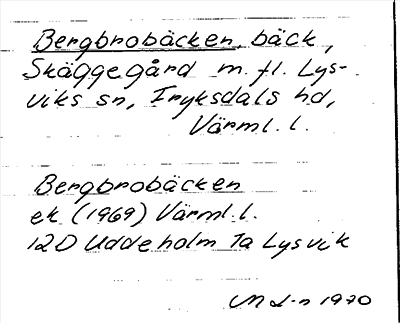 Bergbrobäcken, bäck,
Skäggegård m. fl. Lys-
viks sn, Fryksdals hd,
Värml. l.
Bergbrobäcken
ek (1969) Värml. l.
12D Uddeholm 7a Lysvik
1970